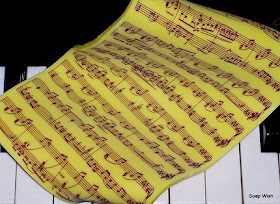 Soap Wish